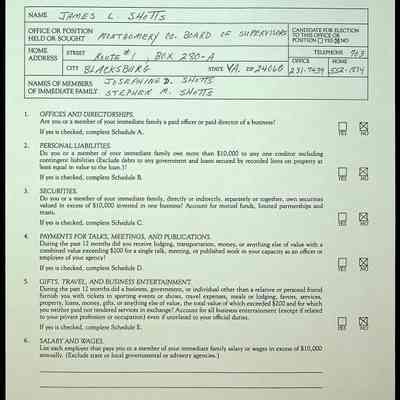 NAME JAMES L. SHOTTS
OFFICE OR POSITION HELD OR SOUGHT MONTGOMERY CO. BOARD OF SUPERVISORS
CANDIDATE FOR ELECTION TO THIS OFFICE OR POSITION YES NO
HOME ADDRESS STREET ROUTE #1, BOX 280-A
TELEPHONE 703
CITY BLACKSBURG STATE VA. ZIP 24060
OFFICE HOME
NAMES OF MEMBERS OF IMMEDIATE FAMILY JOSEPHINE D. SHOTTS
STEPHEN M. SHOTTS
1. OFFICES AND DIRECTORSHIPS.
Are you or a member of your immediate family a paid officer or paid director of a business?
If yes is checked, complete Schedule A. YES NO
2. PERSONAL LIABILITIES.
Do you or a member of your immediate family owe more than $10,000 to any one creditor including
contingent liabilities (Exclude debts to any government and loans secured by recorded liens on property at
least equal in value to the loan.)?
If yes is checked, complete Schedule B. YES NO
3. SECURITIES.
Do you or a member of your immediate family, directly or indirectly, separately or together, own securities
valued in excess of $10,000 invested in one business? Account for mutual funds, limited partnerships and
trusts.
If yes is checked, complete Schedule C. YES NO
4. PAYMENTS FOR TALKS, MEETINGS, AND PUBLICATIONS.
During the past 12 months did you receive lodging, transportation, money, or anything else of value with a
combined value exceeding $200 for a single talk, meeting, or published work in your capacity as an officer or
employee of your agency?
If yes is checked, complete Schedule D. YES NO
5. GIFTS, TRAVEL, AND BUSINESS ENTERTAINMENT.
During the past 12 months did a business, government, or individual other than a relative or personal friend
furnish you with tickets to sporting events or shows, travel expenses, meals or lodging, favors, services,
property, loans, money, gifts, or anything else of value, the total value of which exceeded $200 and for which
you neither paid nor rendered services in exchange? Account for all business entertainment (except if related
to your private profession or occupation) even if unrelated to your official duties.
If yes is checked, complete Schedule E. YES NO
6. SALARY AND WAGES.
List each employer that pays you or a member of your immediate family salary or wages in excess of $10,000
annually. (Exclude state or local governmental or advisory agencies.)